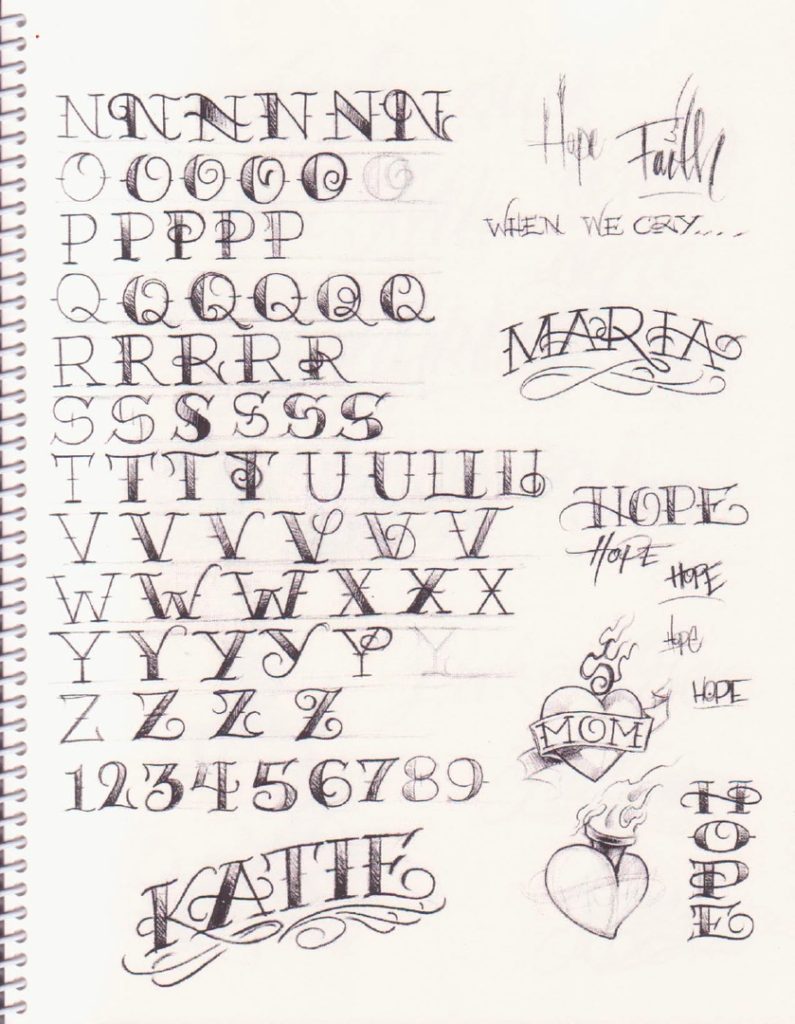 N N N N N N
O O O O O O
P P P P P
Q Q Q Q Q Q
R R R R R
S S S S S S
T T T T U U U U
V V V V V V
W W W X X X
Y Y Y Y Y Y
Z Z Z Z
1 2 3 4 5 6 7 8 9
KATIE
Hope Faith
WHEN WE CRY.....
MARIA
HOPE
HOPE
HOPE
Hope
HOPE
MOM
HOPE